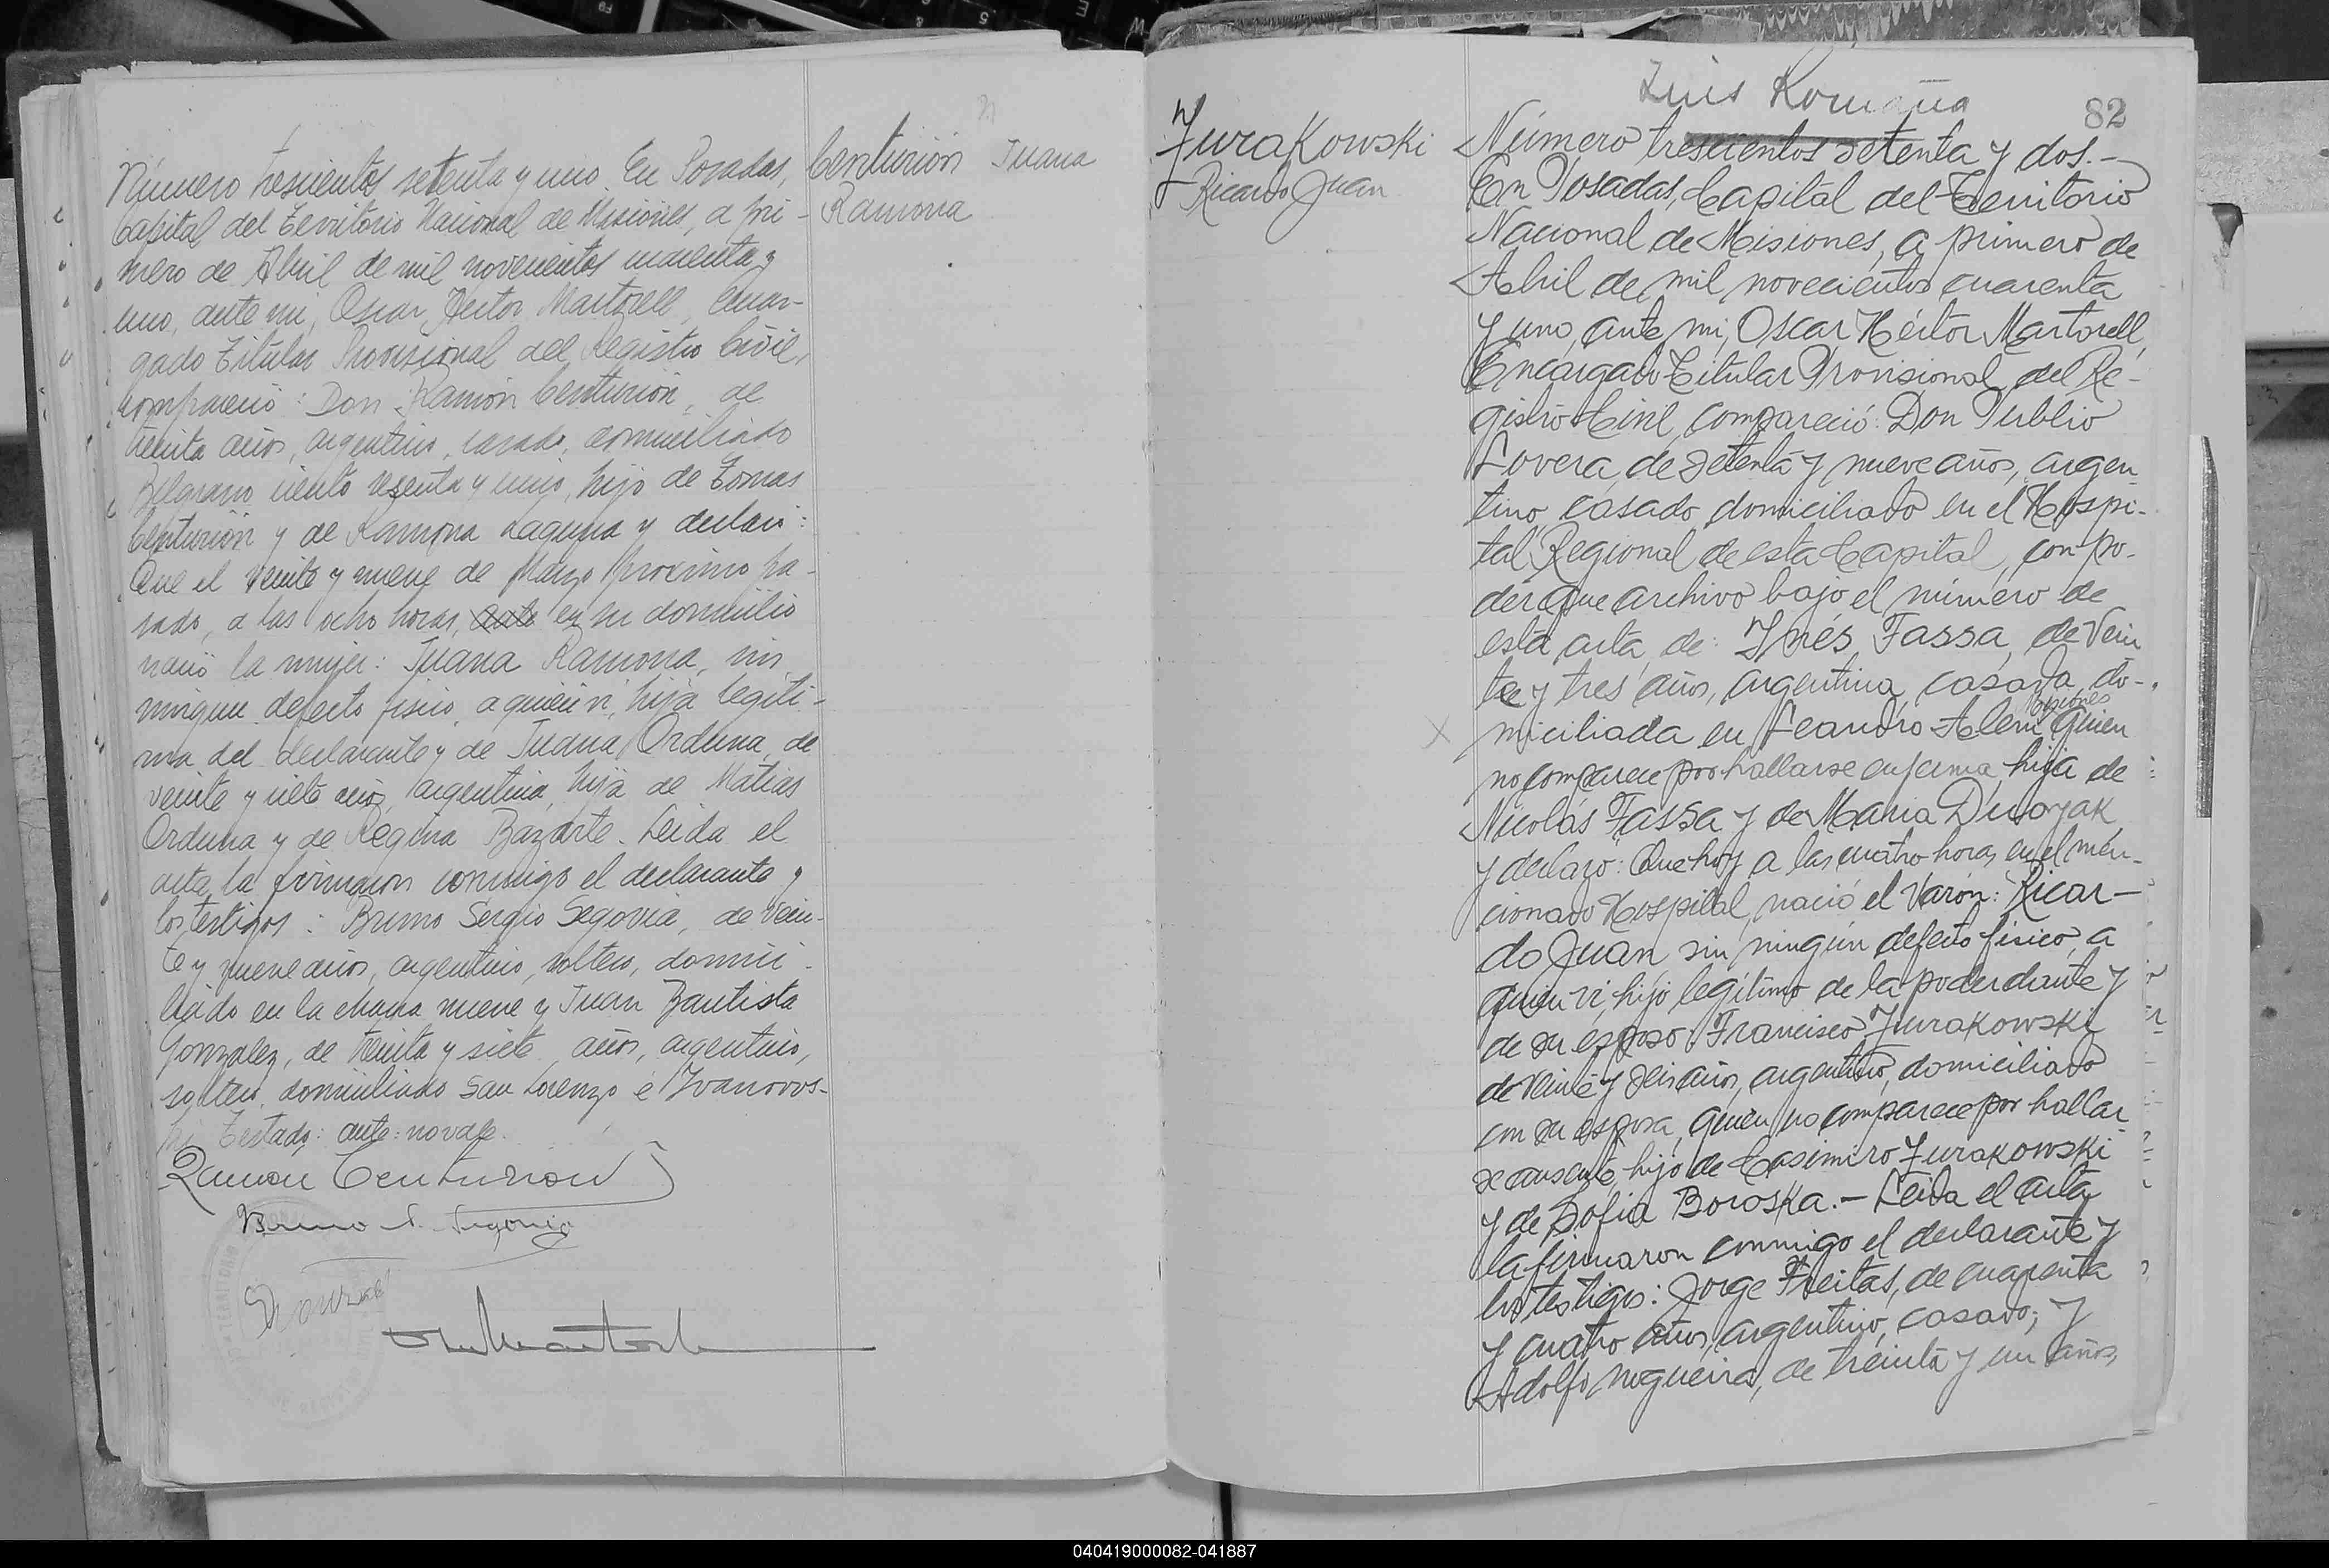 Número trescientos setenta y uno. En Posadas,
Capital del Territorio Nacional de Misiones, a pri-
mero de Abril de mil novecientos cuarenta y
uno, ante mi, Oscar Héctor Martorell, Encar-
gado Titular Provisional del Registro Civil,
compareció: Don Ramón Centurión, de
treinta años, argentino, casado, domiciliado
Belgrano ciento sesenta y uno, hijo de Tomas
Centurión y de Ramona Laguna y declaró:
Que el veinte y nueve de Marzo próximo pa-
sado, a las ocho horas, ante en su domicilio
nació la mujer: Juana Ramona, sin
ningun defecto fisico, a quien vi, hija legiti-
ma del declarante y de Juana Orduna, de
veinte y siete años, argentina, hija de Matias
Orduna y de Regina Bazarte. Leida el
acta la firmaron conmigo el declarante y
los testigos: Bruno Sergio Segovia, de vein-
te y nueve años, argentino, soltero, domici-
liado en la chacra nueve y Juan Bautista
Gonzalez, de treinta y siete años, argentino,
soltero, domiciliado San Lorenzo é Ivanows-
ki Testado: ante: no vale.
Ramon Centurion
Bruno S. Segovia
Centurión Juana
Ramona
Jurakowski
Ricardo Juan
Luis Romaña
82
Número trescientos setenta y dos.-
En Posadas, Capital del Territorio
Nacional de Misiones, a primero de
Abril de mil novecientos cuarenta
y uno, ante mi, Oscar Héctor Martorell,
Encargado Titular Provisional del Re-
gistro Civil, compareció: Don Publio
Lovera, de setenta y nueve años, argen
tino, casado, domiciliado en el Hospi-
tal Regional de esta Capital, con po-
der que archivo bajo el número de
esta acta, de: Inés Fassa, de vein
te y tres años, argentina, casada, do-
Misiones
miciliada en Leandro Alem quien
no comparece por hallarse enferma, hija de
Nicolás Fassa y de Maria
y declaró: Que hoy a las cuatro horas, en el men-
cionado Hospital, nació el Varón: Ricar-
do Juan sin ningún defecto físico, a
quien vi, hijo legítimo de la poderdante y
de su esposo: Francisco Jurakowski
de veinte y seis años, argentino, domiciliado
con su esposa, quien no comparece por hallar
se ausente, hijo de Casimiro Jurakowski
y de Sofia Boroska.- Leida el acta
la firmaron conmigo el declarante y
los testigos: Jorge Freitas, de cuarenta
y cuatro años, argentino, casado; y
Adolfo Nogueira, de treinta y un años,
040419000082-041887